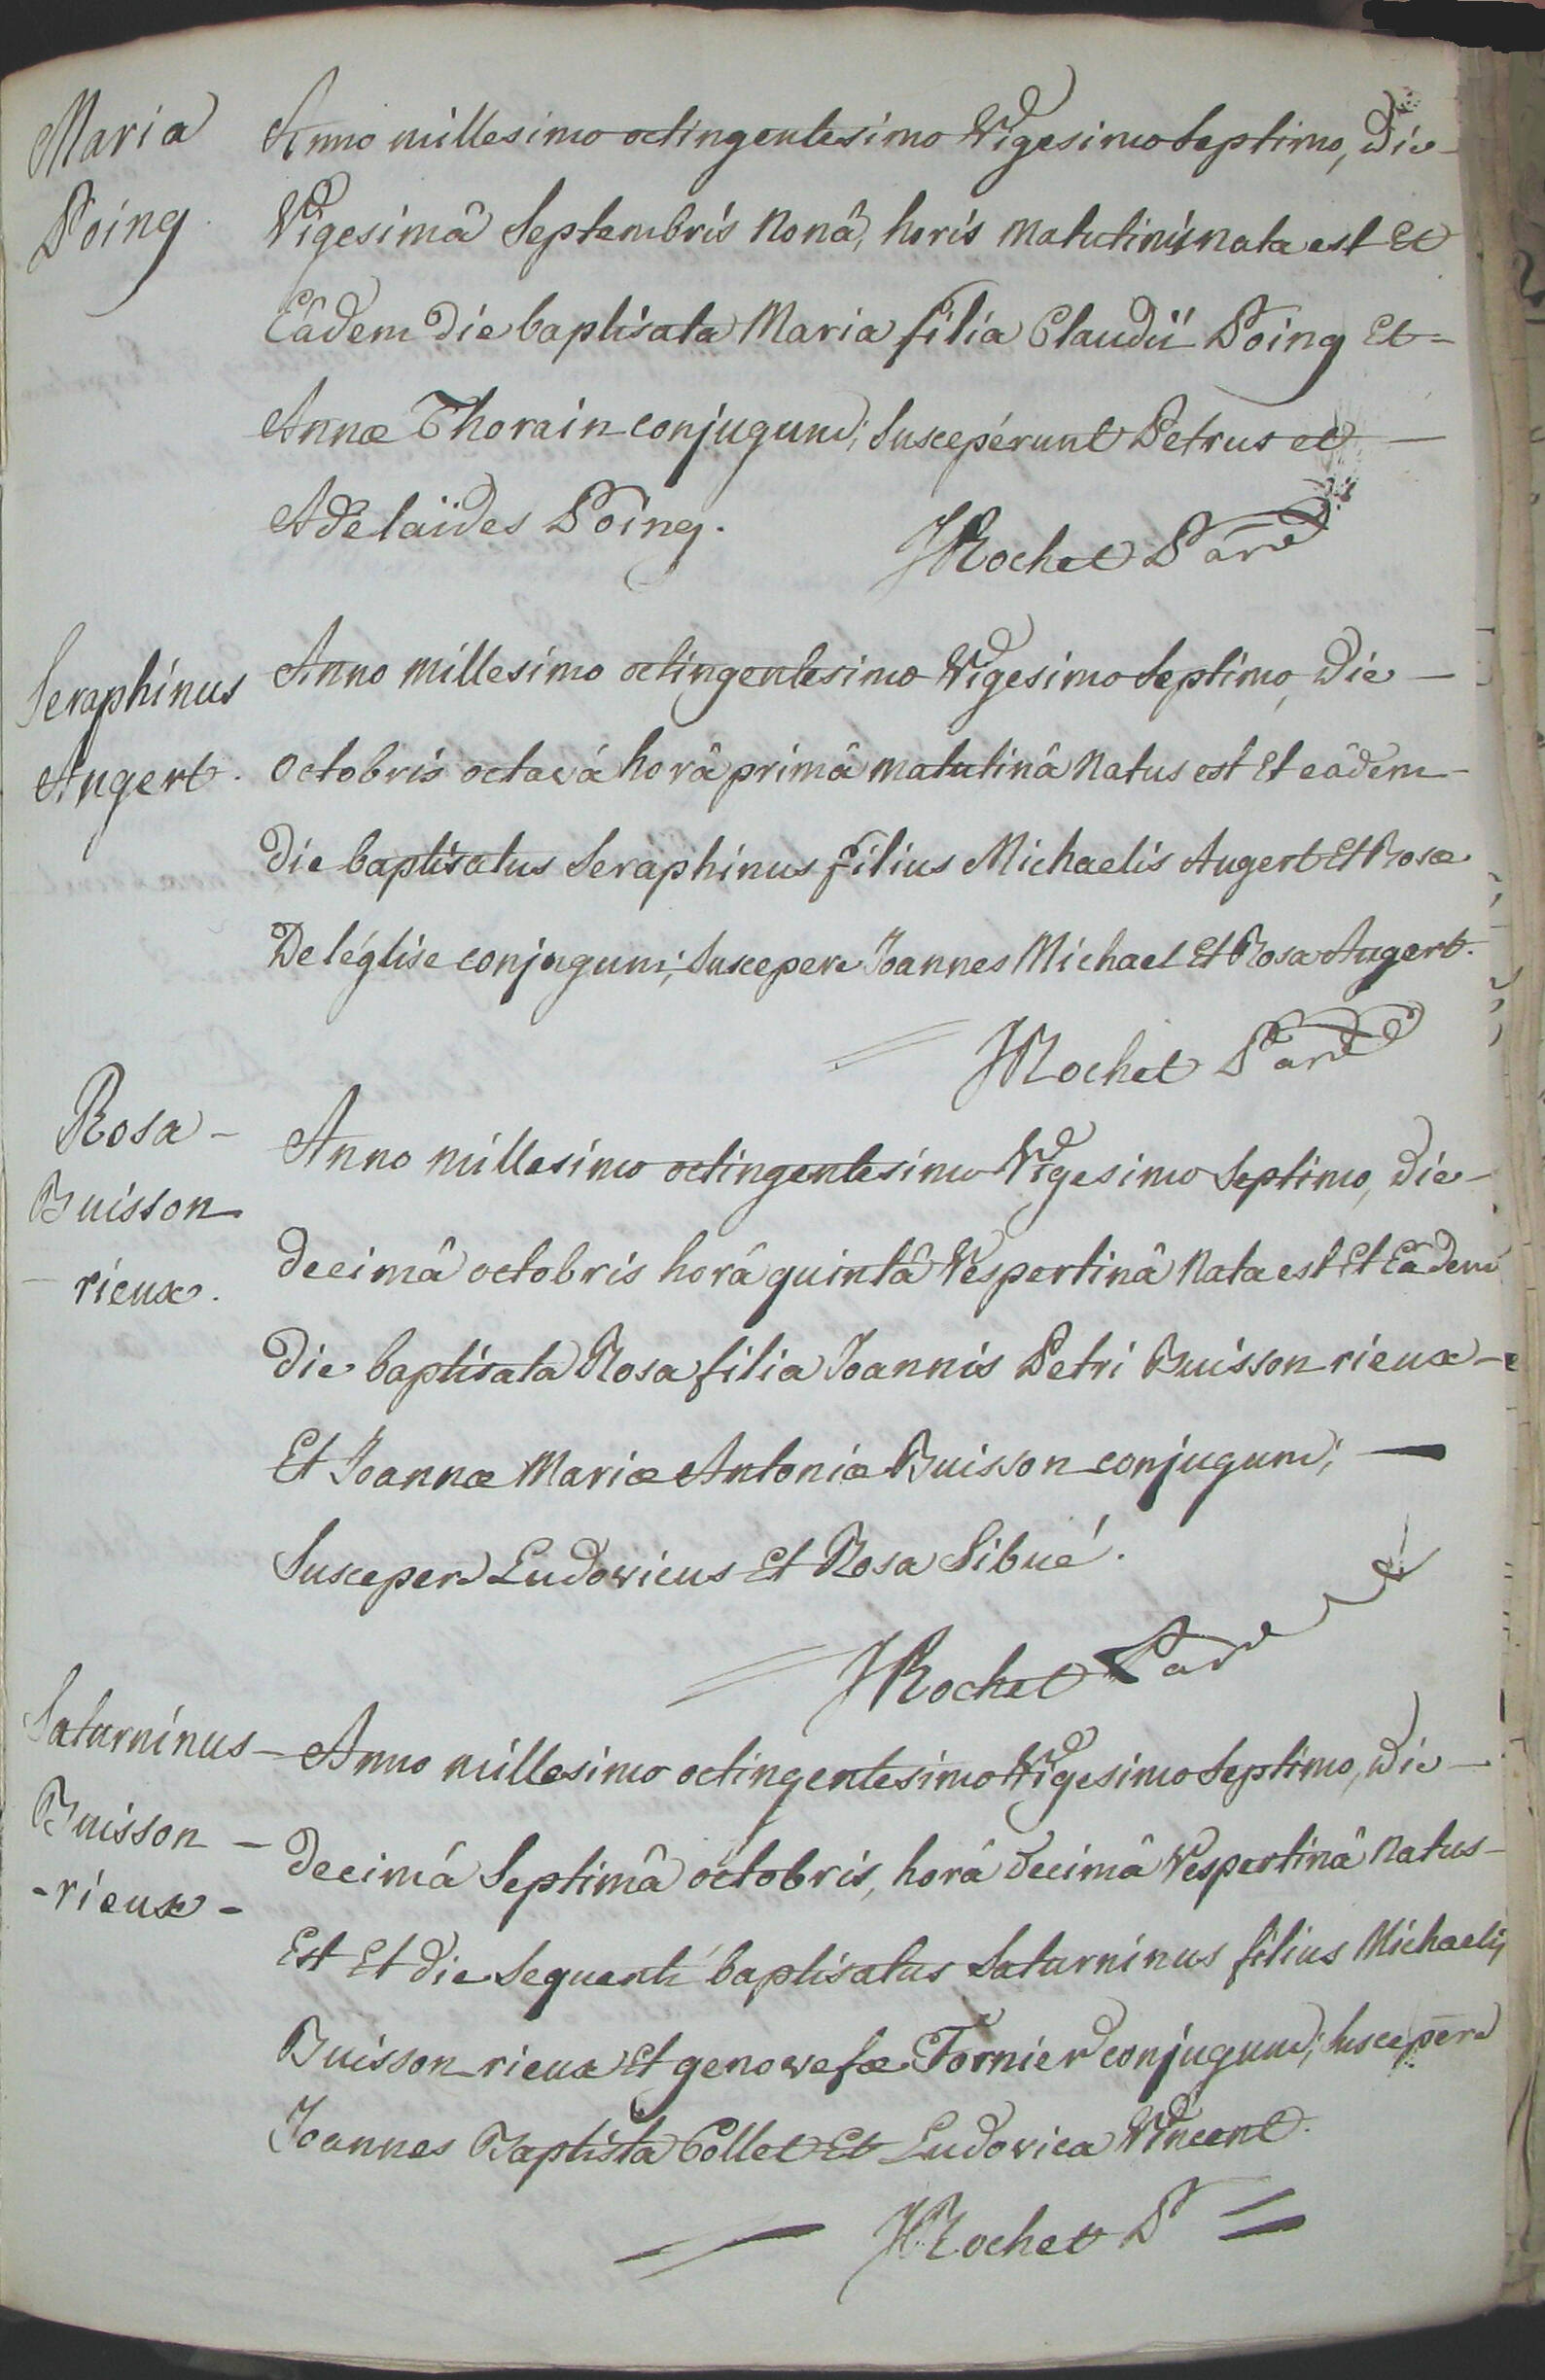 Maria
Poing
Anno millesimo octingentesimo Vigesimo Septimo, die
Vigesimâ Septembris nonâ, horis matutinis nata est Et
Eâdem die baptisata Maria filia Claudii Poing Et
Annæ Thorain conjugum; Suscepérunt Petrus et
Adelaïdes Poing.
JRochet Par
Seraphinus
Augert.
Anno millesimo octingentesimo Vigesimo Septimo, die
octobris octavá horâ primâ matutinâ natus est Et eâdem
die baptisatus Seraphinus filius Michaelis Augert Et Rosæ
Deléglise conjugum; Suscepere Joannes Michael Et Rosa Augert.
JRochet Par
Rosa
Buisson
rieux.
Anno millesimo octingentesimo Vigesimo Septimo, die
decimâ octobris horâ quintâ Vespertinâ nata est Et Eâdem
die baptisata Rosa filia Joannis Petri Buisson rieux
Et Joannæ Mariæ Antoniæ Buisson conjugum;
Suscepere Ludovicus Et Rosa Sibué.
JRochet Par
Saturninus
Buisson
-rieux-
Anno millesimo octingentesimo Vigesimo Septimo, die
decimá Septimâ octobris, horâ decimâ Vespertinâ natus
Est Et die Sequenti baptisatus Saturninus filius Michaelis
Buisson rieux Et genovefæ Fornier conjugum; Suscepēre
Joannes Baptista Collet Et Ludovica Vincent.
JRochet P